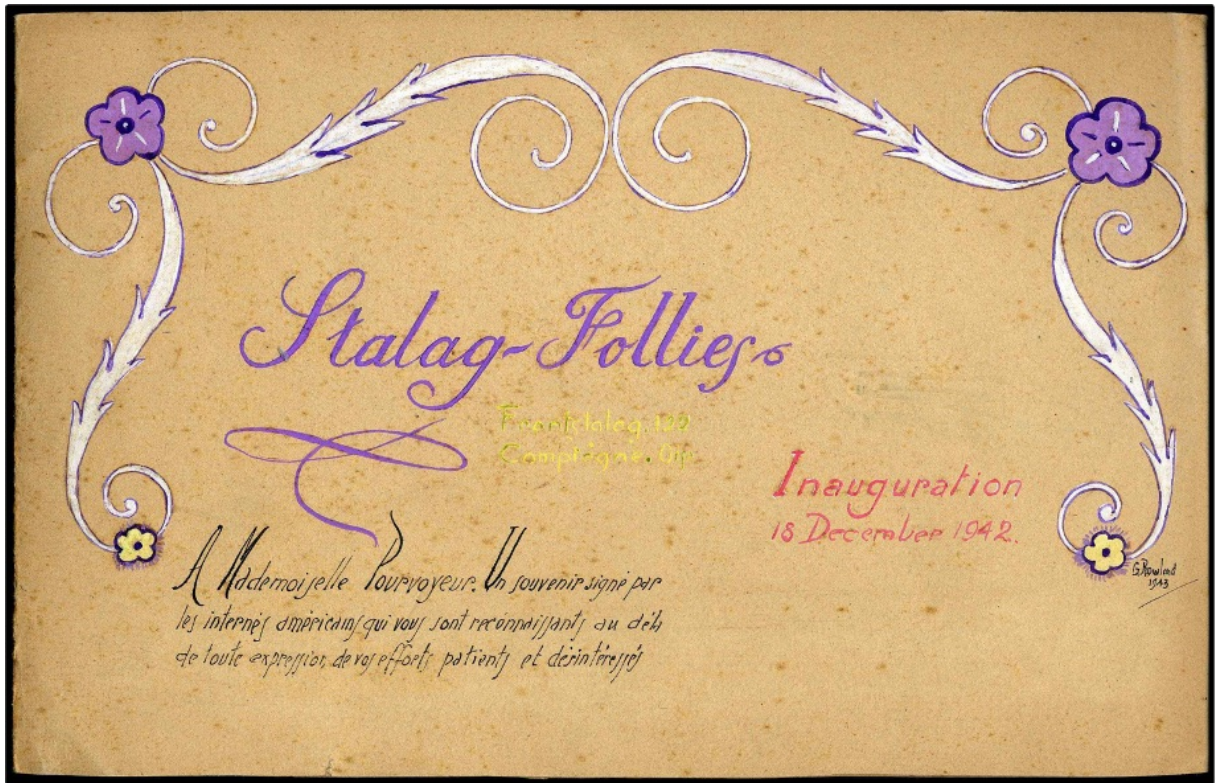 Stalag-Follies
Frontstalag.122
Compiègne. Oise
Inauguration
18 December 1942.
A Mademoiselle Pourvoyeur. Un souvenir signé par
les internés américains qui vous sont reconnaissants au délà
de toute expression, de vos efforts patients et désintéressés
G. Rowland
1943